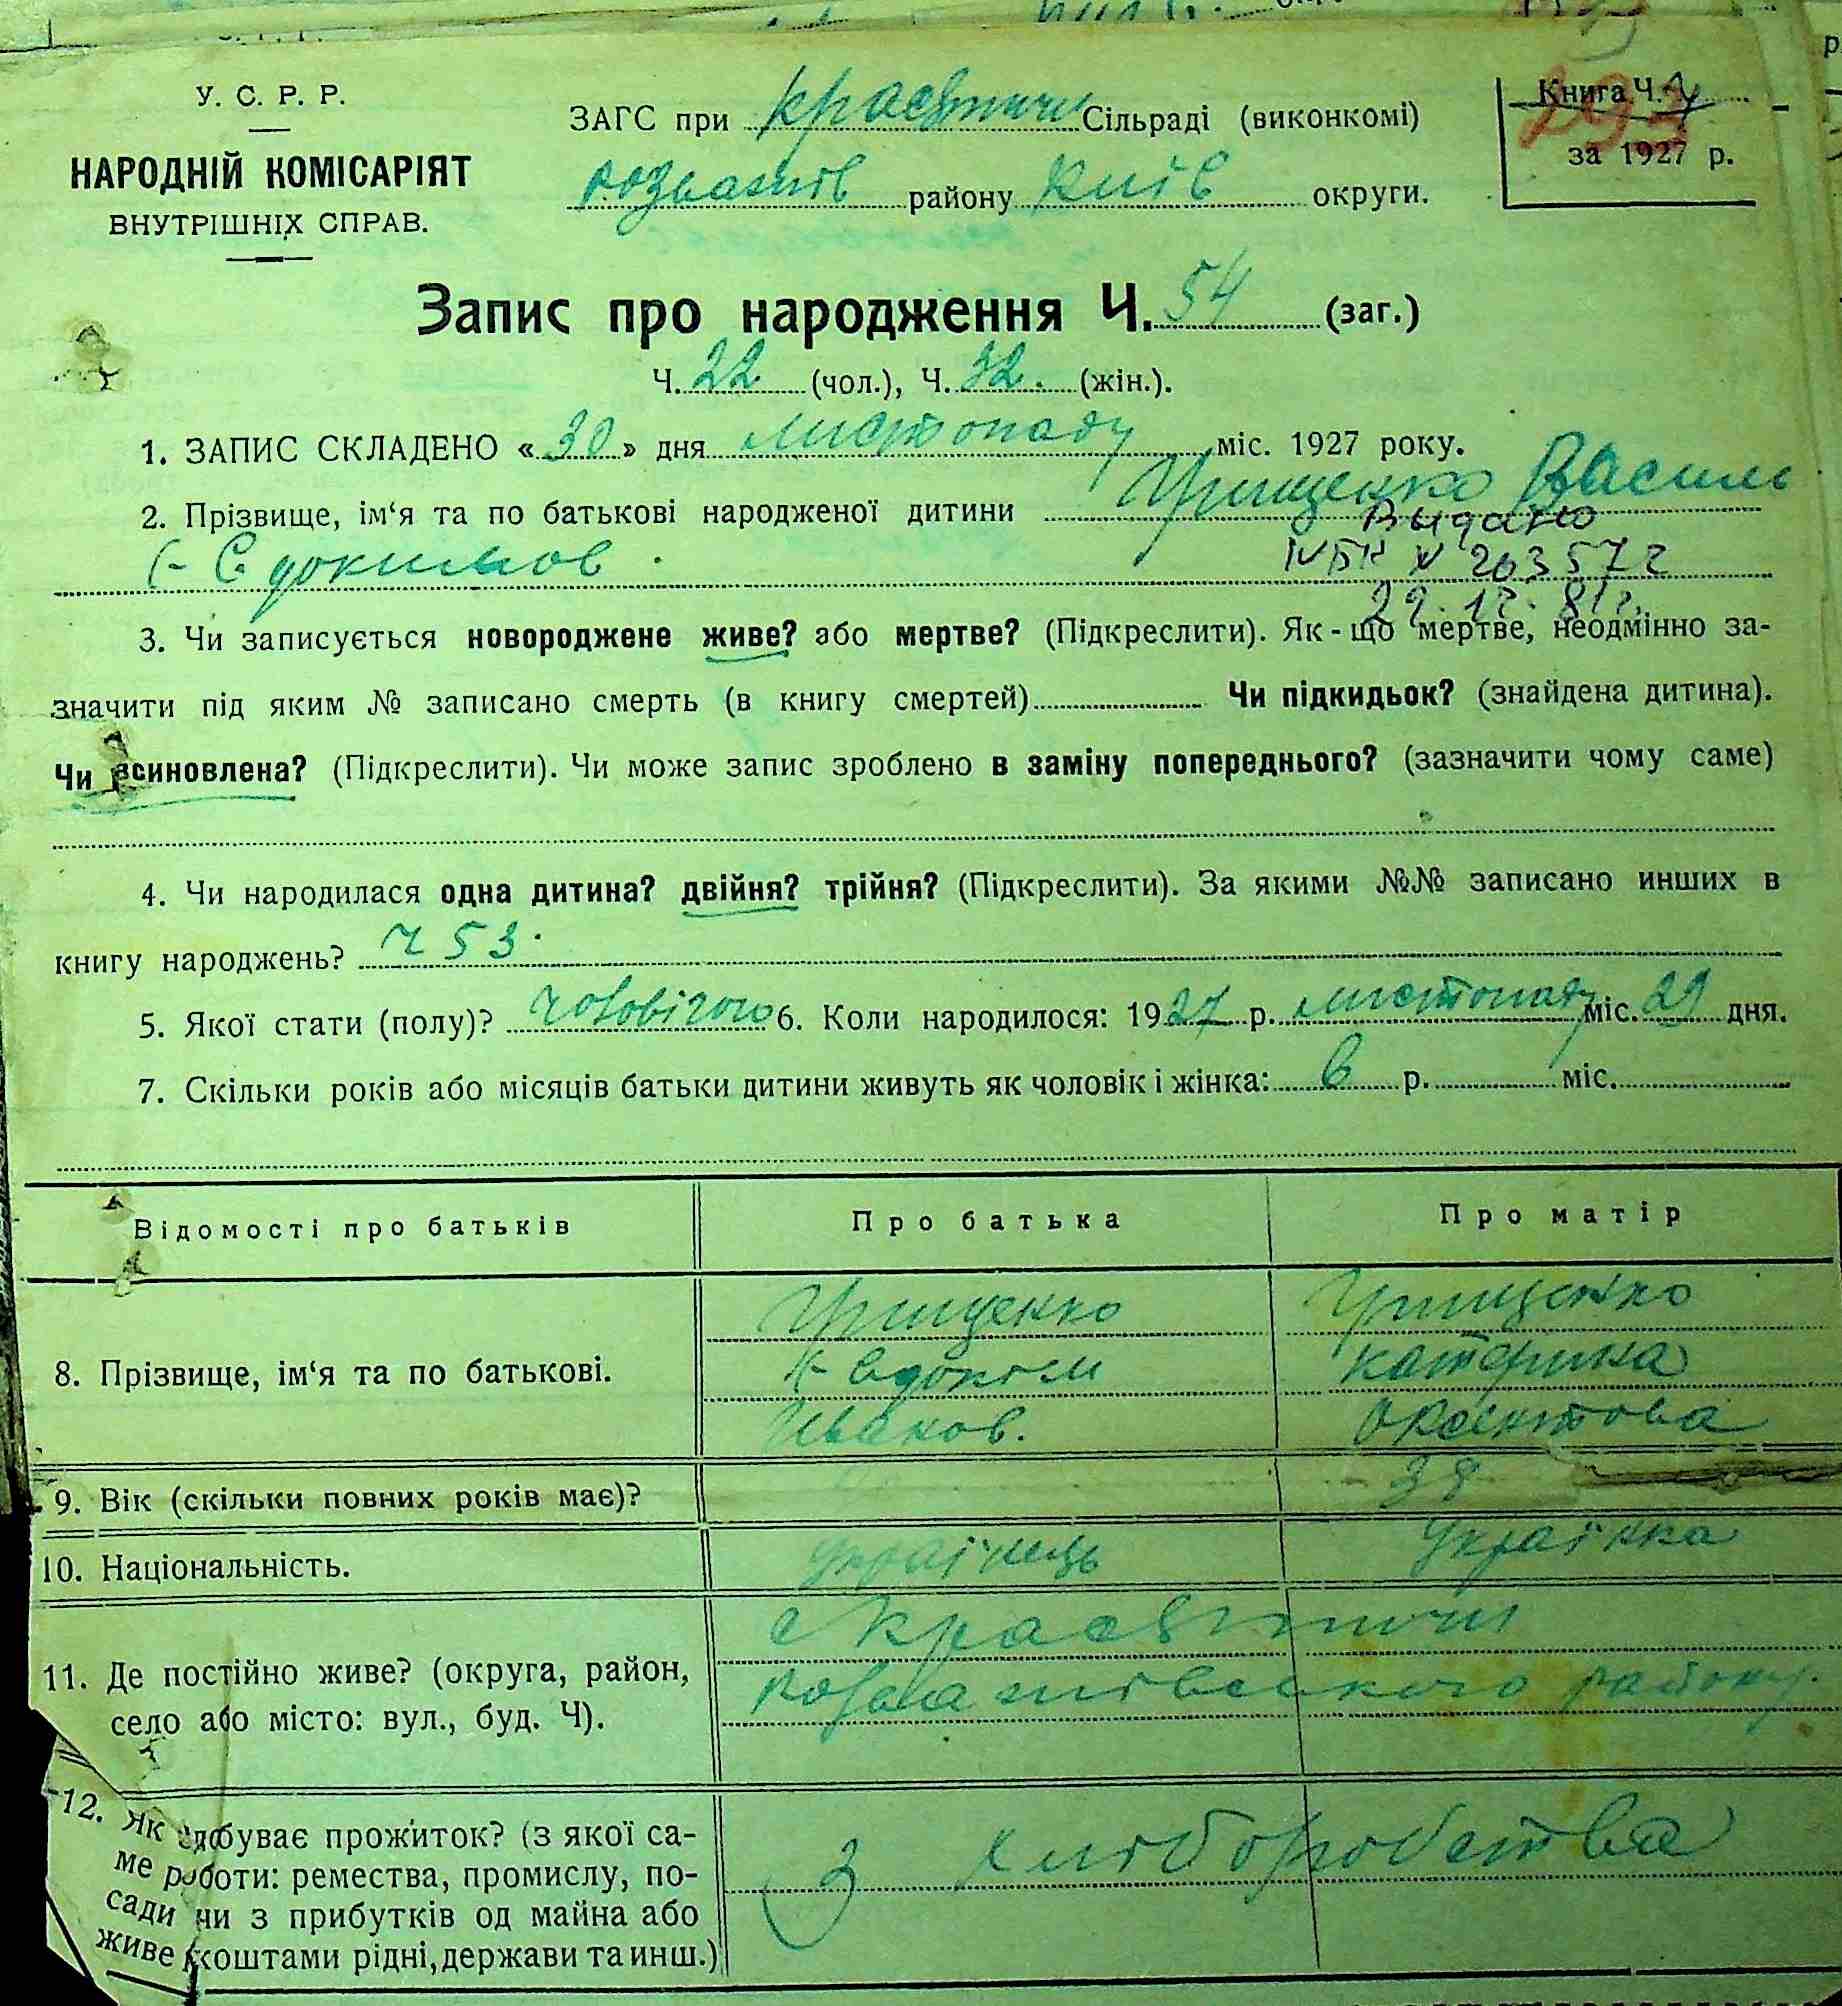 У. С. Р. Р.
НАРОДНІЙ КОМІСАРІЯТ
ВНУТРІШНІХ СПРАВ.
ЗАГС при Красятичи Сільраді (виконкомі)
Розважів району Київ округи.
Книга Ч.
за 1927 р.
Запис про народження Ч. 54 (заг.)
Ч. 22 (чол.), Ч. 32. (жін.).
1. ЗАПИС СКЛАДЕНО « 30 » дня листопаду міс. 1927 року.
2. Прізвище, ім‘я та по батькові народженої дитини Грищенко Василь
Євдокимов
Выдано
IV БК № 203572
29. 12. 81г.
3. Чи записується новороджене живе? або мертве? (Підкреслити). Як-що мертве, неодмінно за-
значити під яким № записано смерть (в книгу смертей) Чи підкидьок? (знайдена дитина).
Чи всиновлена? (Підкреслити). Чи може запис зроблено в заміну попереднього? (зазначити чому саме)
4. Чи народилася одна дитина? двійня? трійня? (Підкреслити). За якими №№ записано инших в
книгу народжень? Ч 53.
5. Якої стати (полу)? чоловічого 6. Коли народилося: 1927 р. листопаду міс. 29 дня.
7. Скільки років або місяців батьки дитини живуть як чоловік і жінка: р. міс.
Відомості про батьків Про батька Про матір
8. Прізвище, ім‘я та по батькові.
Грищенко Грищенко
Євдоким Катерина
Иванов.
9. Вік (скільки повних років має)? 38
10. Національність. Українець Українка
11. Де постійно живе? (округа, район,
село або місто: вул., буд. Ч).
с Красятичи
Розважівського району.
12. Як здобуває прожиток? (з якої са-
ме роботи: ремества, промислу, по-
сади чи з прибутків од майна або
живе коштами рідні, держави та инш.)
З хліборобства